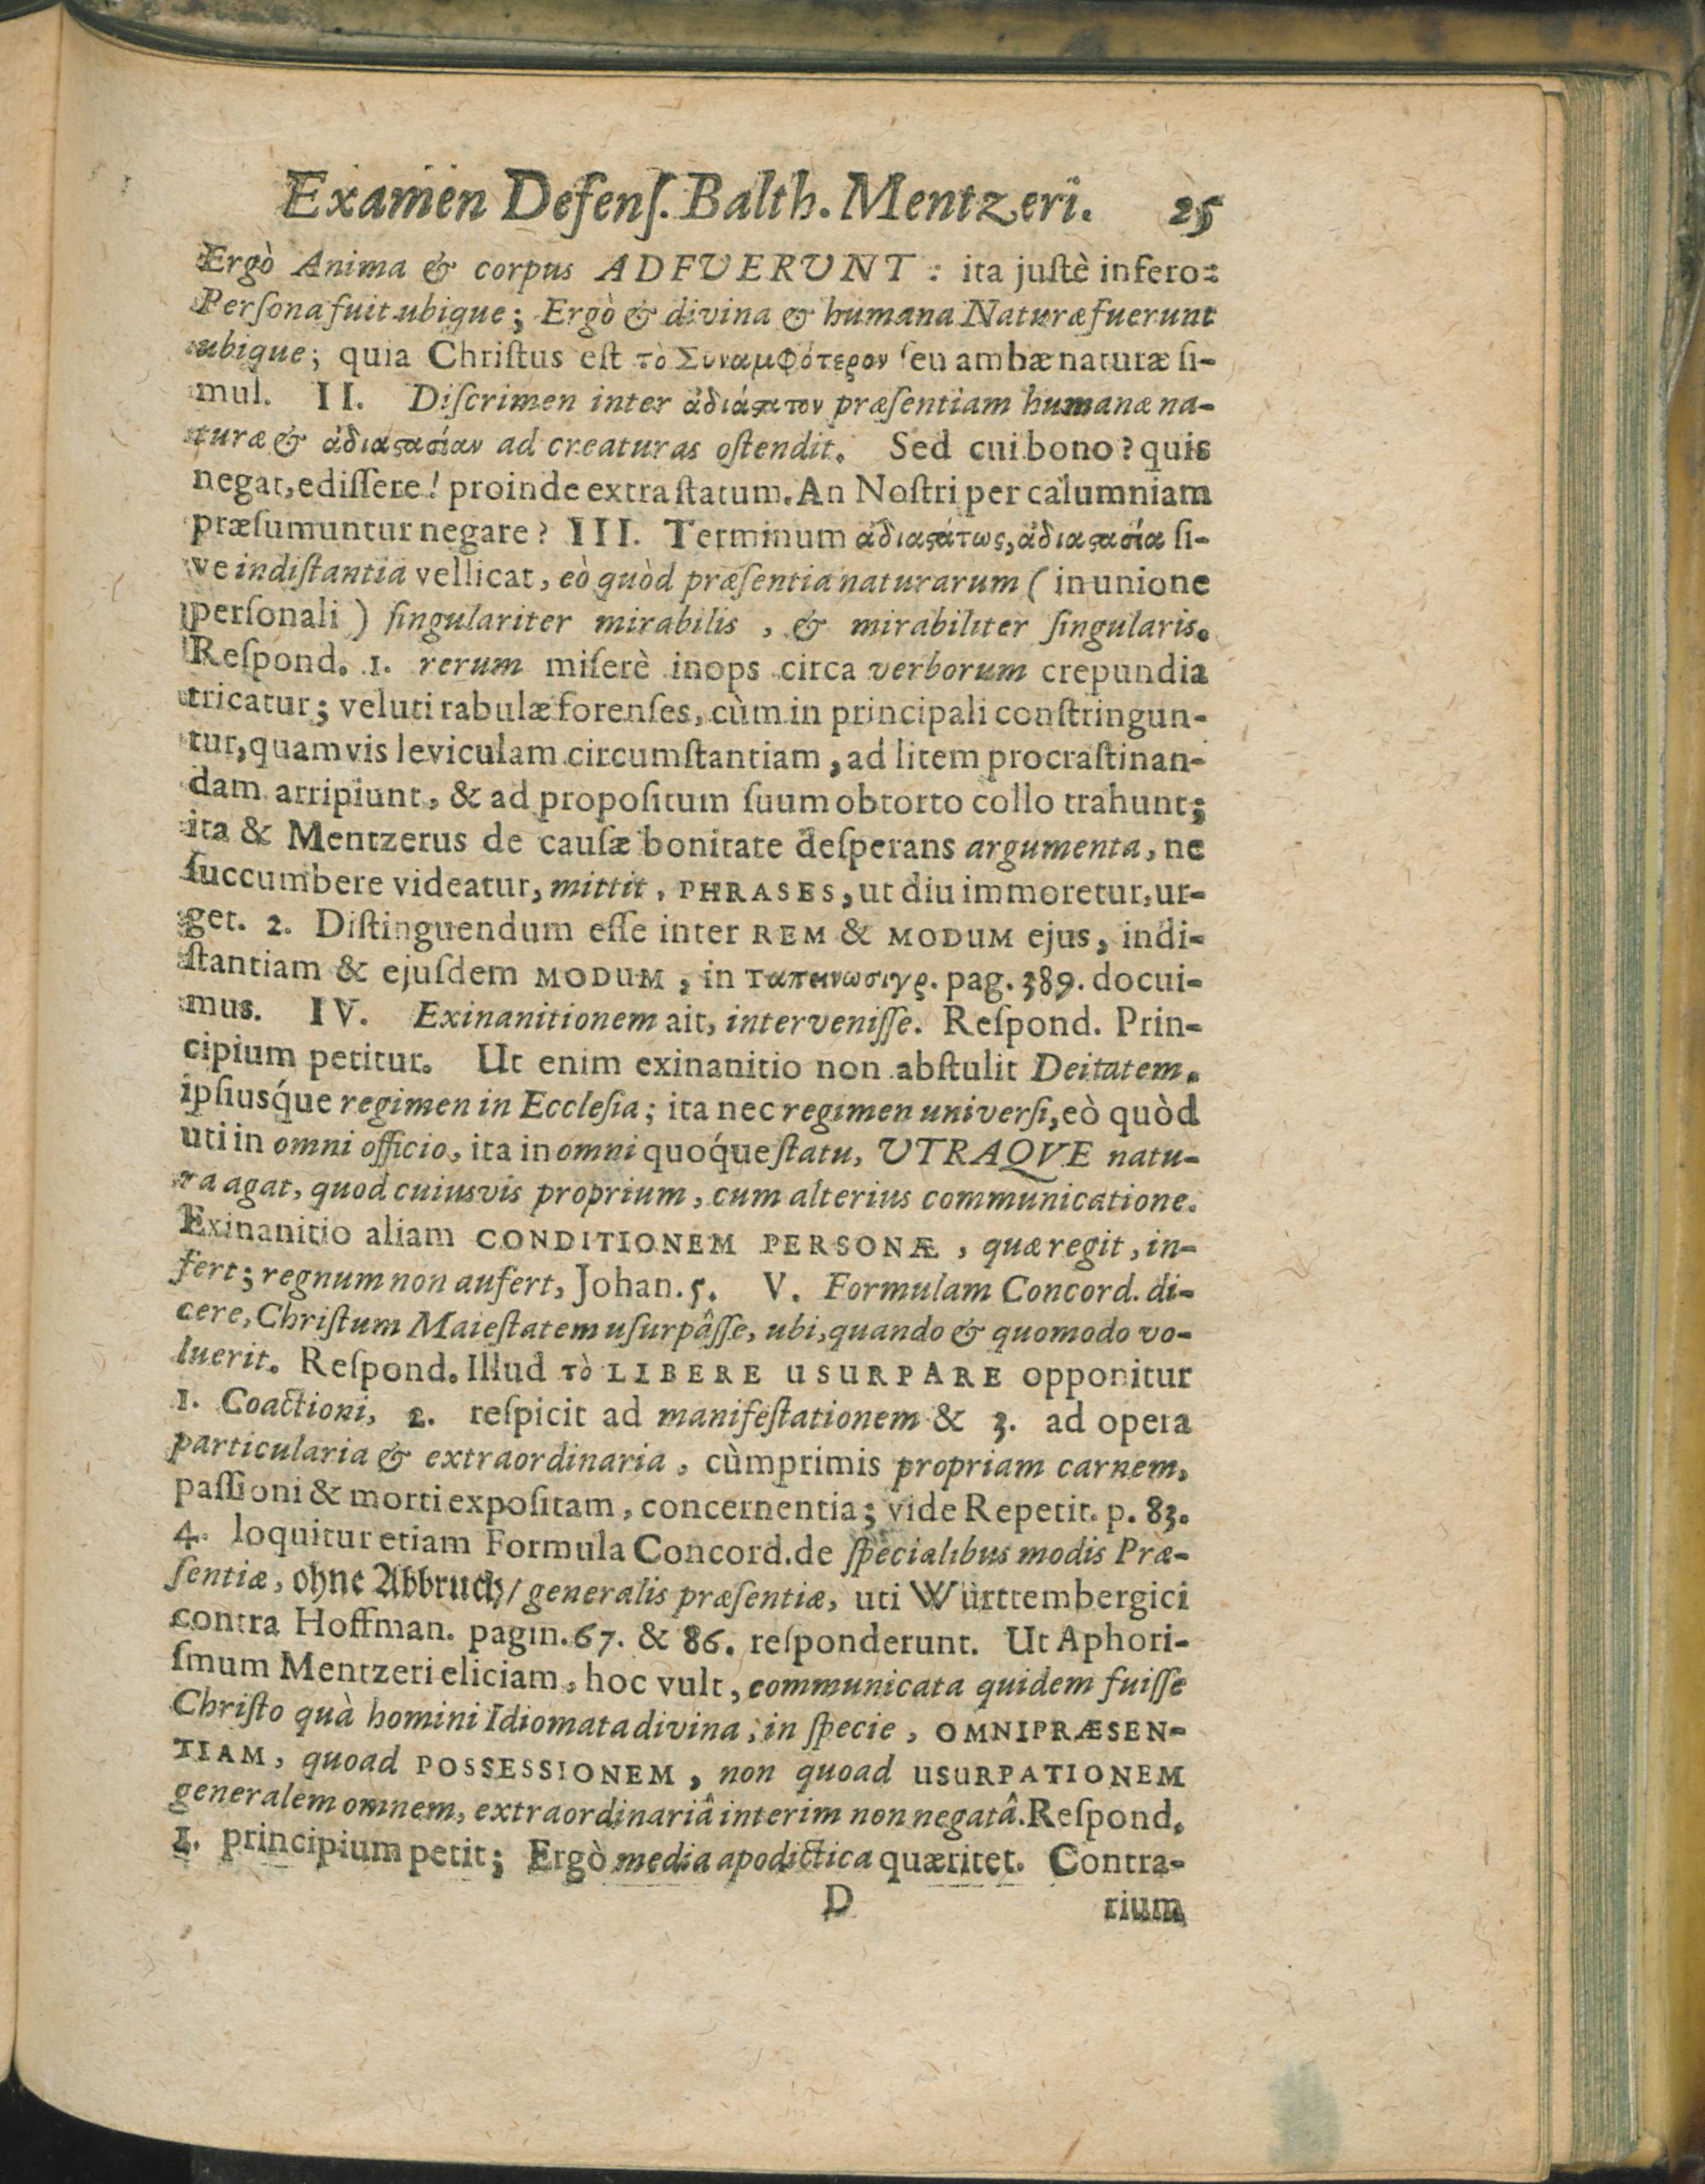 Examen Defenſ. Balth. Mentzeri. 25
Ergò Anima & corpus ADFVERVNT: ita juſtè infero:
Perſona fuit ubique; Ergò & divina & humana Naturæ fuerunt
ubique; quia Chriſtus eſt τὸ Συναμφότερον ſeu ambæ naturæ ſi-
mul. II. Diſcrimen inter ἀδιάϛατον præſentiam humanæ na-
turæ & ἀδιαϛασίαν ad creaturas oſtendit. Sed cui bono? quis
negat, ediſſere! proinde extra ſtatum. An Noſtri per calumniam
præſumuntur negare? III. Terminum ἀδιαϛάτως, ἀδιαϛασία ſi-
ve indiſtantia vellicat, eò quòd præſentia naturarum (in unione
perſonali) ſingulariter mirabilis, & mirabiliter ſingularis.
Reſpond. 1. rerum miſerè inops circa verborum crepundia
tricatur; veluti rabulæ forenſes, cùm in principali conſtringun-
tur, quamvis leviculam circumſtantiam, ad litem procraſtinan-
dam arripiunt, & ad propoſitum ſuum obtorto collo trahunt;
ita & Mentzerus de cauſæ bonitate deſperans argumenta, ne
ſuccumbere videatur, mittit, PHRASES, ut diu immoretur, ur-
get. 2. Diſtinguendum eſſe inter REM & MODUM ejus, indi-
ſtantiam & ejuſdem MODUM, in Ταπεινωσιγρ. pag. 389. docui-
mus. IV. Exinanitionem ait, interveniſſe. Reſpond. Prin-
cipium petitur. Ut enim exinanitio non abſtulit Deitatem,
ipſiusq́ue regimen in Eccleſia; ita nec regimen univerſi, eò quòd
uti in omni officio, ita in omni quoq́ue ſtatu, UTRAQVE natu-
ra agat, quod cuiusvis proprium, cum alterius communicatione.
Exinanitio aliam CONDITIONEM PERSONÆ, quæ regit, in-
fert; regnum non aufert, Johan. 5. V. Formulam Concord. di-
cere, Chriſtum Maieſtatem uſurpâſſe, ubi, quando & quomodo vo-
luerit. Reſpond. Illud τὸ LIBERE USURPARE opponitur
1. Coactioni, 2. reſpicit ad manifeſtationem & 3. ad opera
particularia & extraordinaria, cùmprimis propriam carnem,
paſſioni & morti expoſitam, concernentia; vide Repetit. p. 83.
4. loquitur etiam Formula Concord. de ſpecialibus modis Præ-
ſentiæ, ohne Abbruch/ generalis præſentiæ, uti Württembergici
contra Hoffman. pagin. 67. & 86. reſponderunt. Ut Aphori-
ſmum Mentzeri eliciam, hoc vult, communicata quidem fuiſſe
Chriſto quà homini Idiomata divina, in ſpecie, OMNIPRÆSEN-
TIAM, quoad POSSESSIONEM, non quoad USURPATIONEM
generalem omnem, extraordinariâ interim non negatâ. Reſpond.
1. principium petit; Ergò media apodictica quæritet. Contra-
D rium